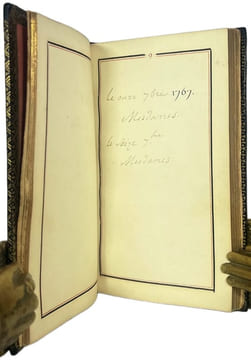 9
le onze 7bre 1767.
Mesdames.
le seize 7bre
Mesdames.